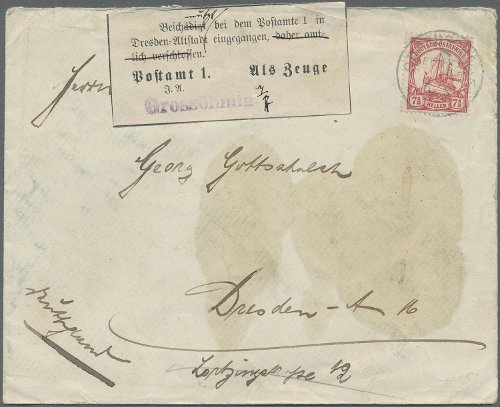 Beschädigt bei dem Postamte 1 in
Dresden-Altstadt eingegangen, daher amt-
lich verschlossen.
Postamt 1. Als Zeuge
J. A.
Grosschmig
DEUTSCH-OSTAFRIKA
7½ 7½
HELLER
Herrn
Georg Gottschalch
Dresden-A 16
Lortzingstraße 12